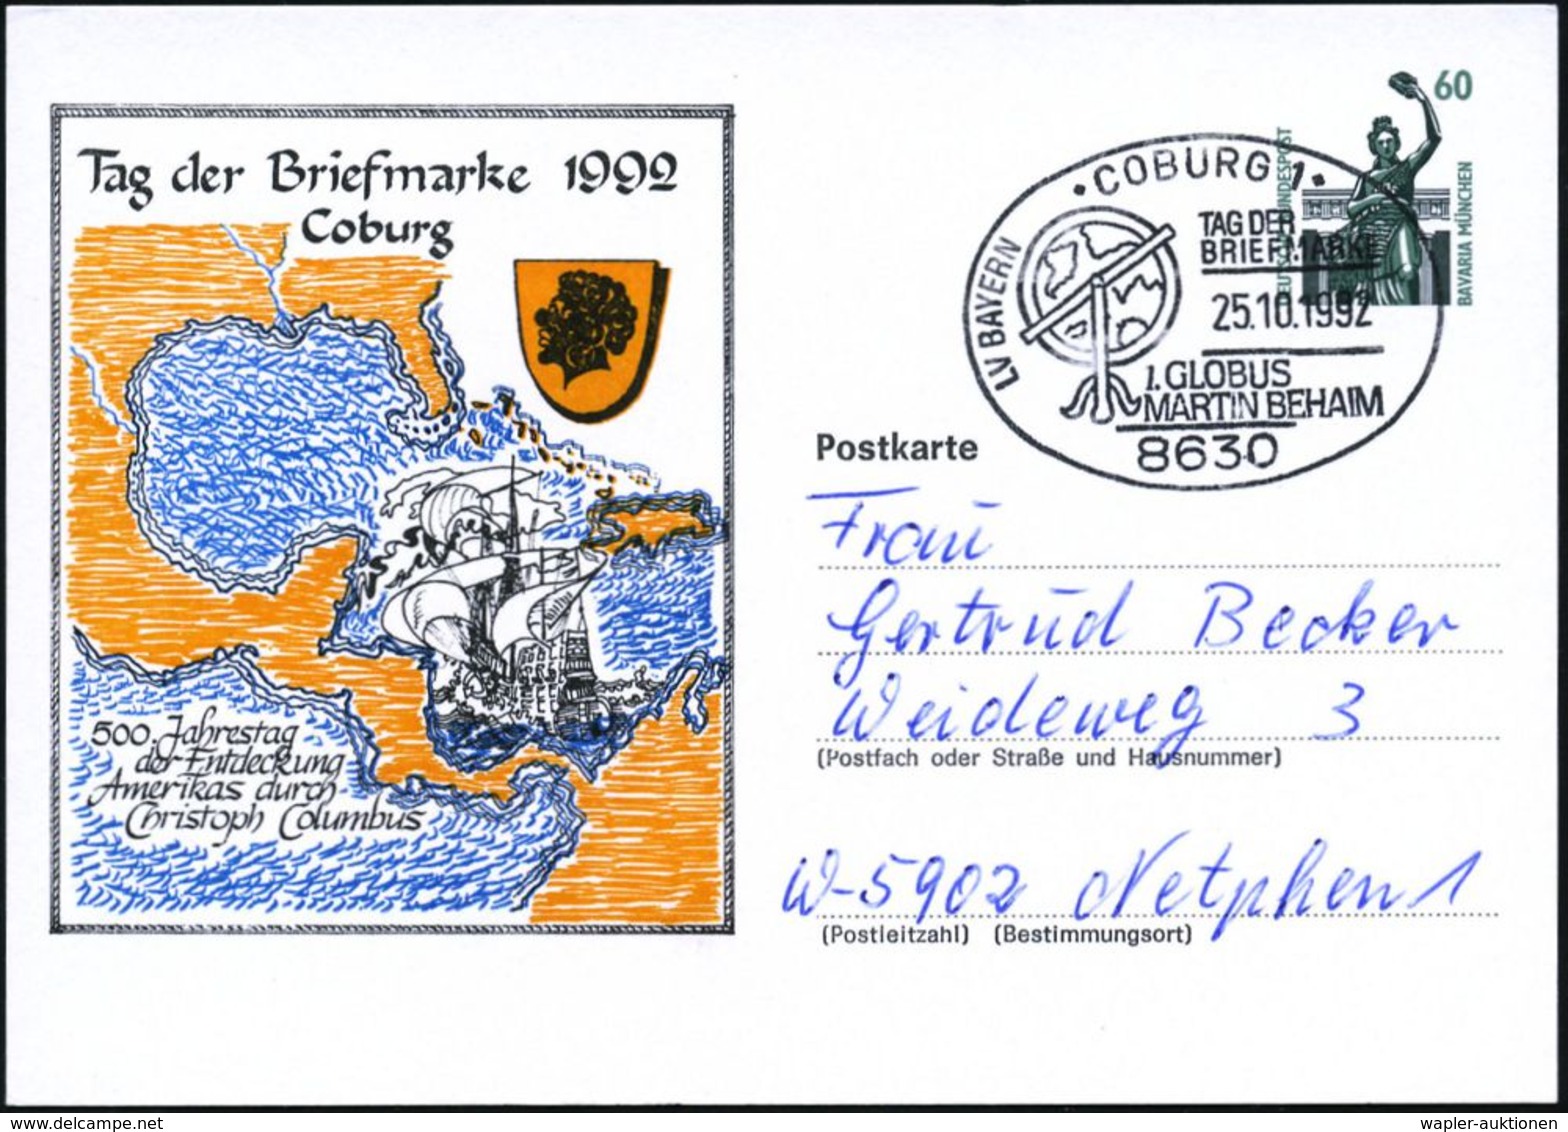 Tag der Briefmarke 1992
Coburg
500. Jahrestag
der Entdeckung
Amerikas durch
Christoph Columbus
60
DEUTSCHE BUNDESPOST
BAVARIA MÜNCHEN
• COBURG 1 •
LV BAYERN
TAG DER
BRIEFMARKE
25.10.1992
1. GLOBUS
MARTIN BEHAIM
8630
Postkarte
Frau
Gertrud Becker
Weideweg 3
(Postfach oder Straße und Hausnummer)
W-5902 Netphen 1
(Postleitzahl) (Bestimmungsort)
wapler-auktionen